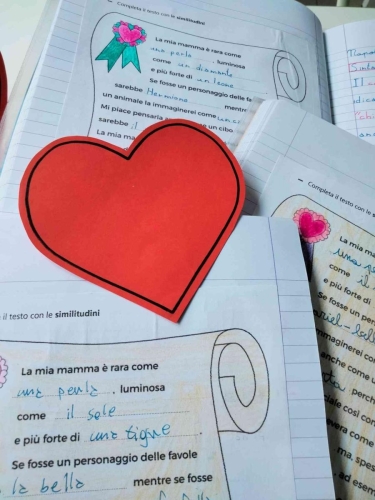 – Completa il testo con le similitudini
La mia mamma è rara come
una perla, luminosa
come un diamante
e più forte di un leone.
Se fosse un personaggio delle fa
sarebbe Hermione mentre
un animale la immaginerei come
Mi piace pensarla un cibo
sarebbe il
La mia ma
– Completa il testo con le s
La mia ma
una
come il
e più forte di
Se fosse un per
ariel-
mmaginerei co
anche come u
perch
ciale così con
vera come
ma, spes
ad esem
il testo con le similitudini
La mia mamma è rara come
una perla, luminosa
come il sole
e più forte di una tigre.
Se fosse un personaggio delle favole
la bella mentre se fosse